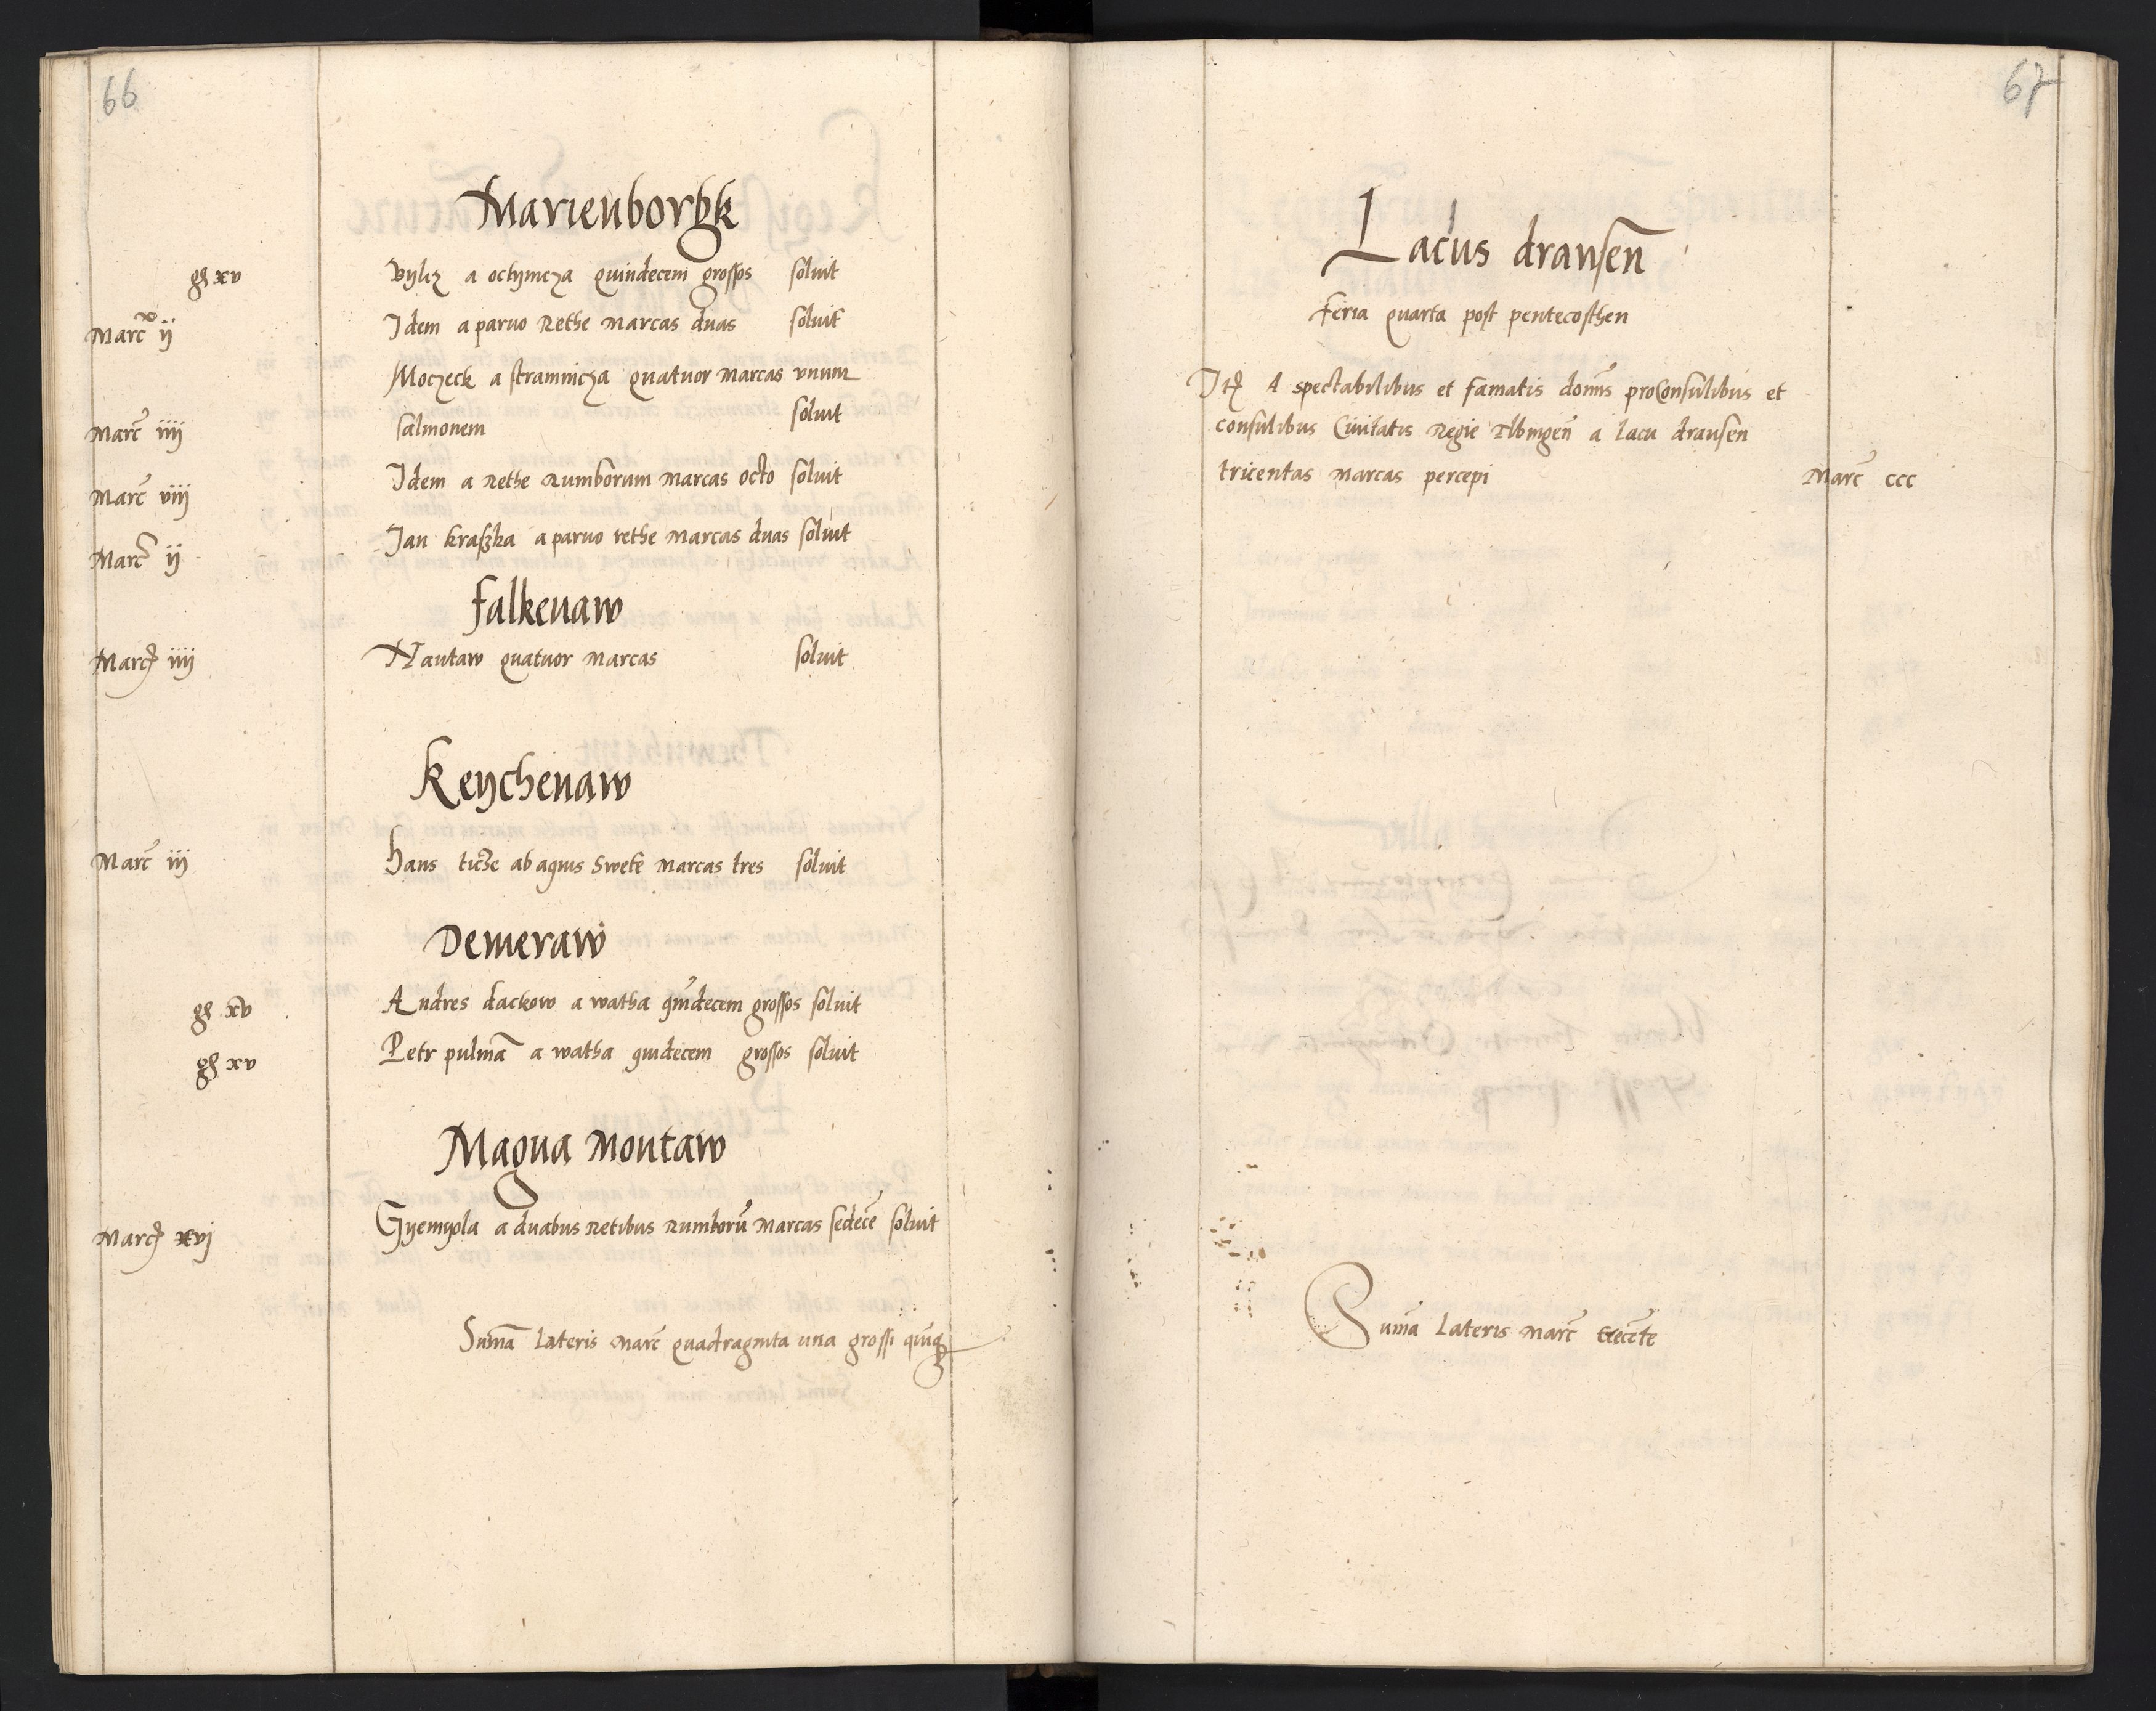 66
Marienborgk
gß xv vylcz a octymcza quindecem grossos soluit
Marc ij Idem a paruo Rethe Marcas duas soluit
Moczeck a stramnicza quatuor Marcas vnum
Marc iiij salmonem soluit
Marc viij Idem a Rethe Rumborum Marcas octo soluit
Marc ij Jan kraßka a paruo rethe Marcas duas soluit
falkenaw
Marc iiij Nantaw quatuor Marcas soluit
Keychenaw
Marc iij hans ticse ab aquis Swete Marcas tres soluit
Demeraw
gß xv Andres dackow a watha quidecem grossos soluit
gß xv Petr pulmā a watha quidecem grossos soluit
Magna Montaw
Marc xvj Gyemyola a duabus Retibus Rumborū Marcas sedecē soluit
Suma Lateris Marc quadraginta una grossi quīqz
67
Lacus drausen
feria quarta post pentecosthen
Itē A spectabilibus et famatis domīs proConsulibus et
consulibus Ciuitatis Regie Elbingeñ a Lacu drausen
tricentas Marcas percepi Marc ccc
Suma Lateris Marc trecēte